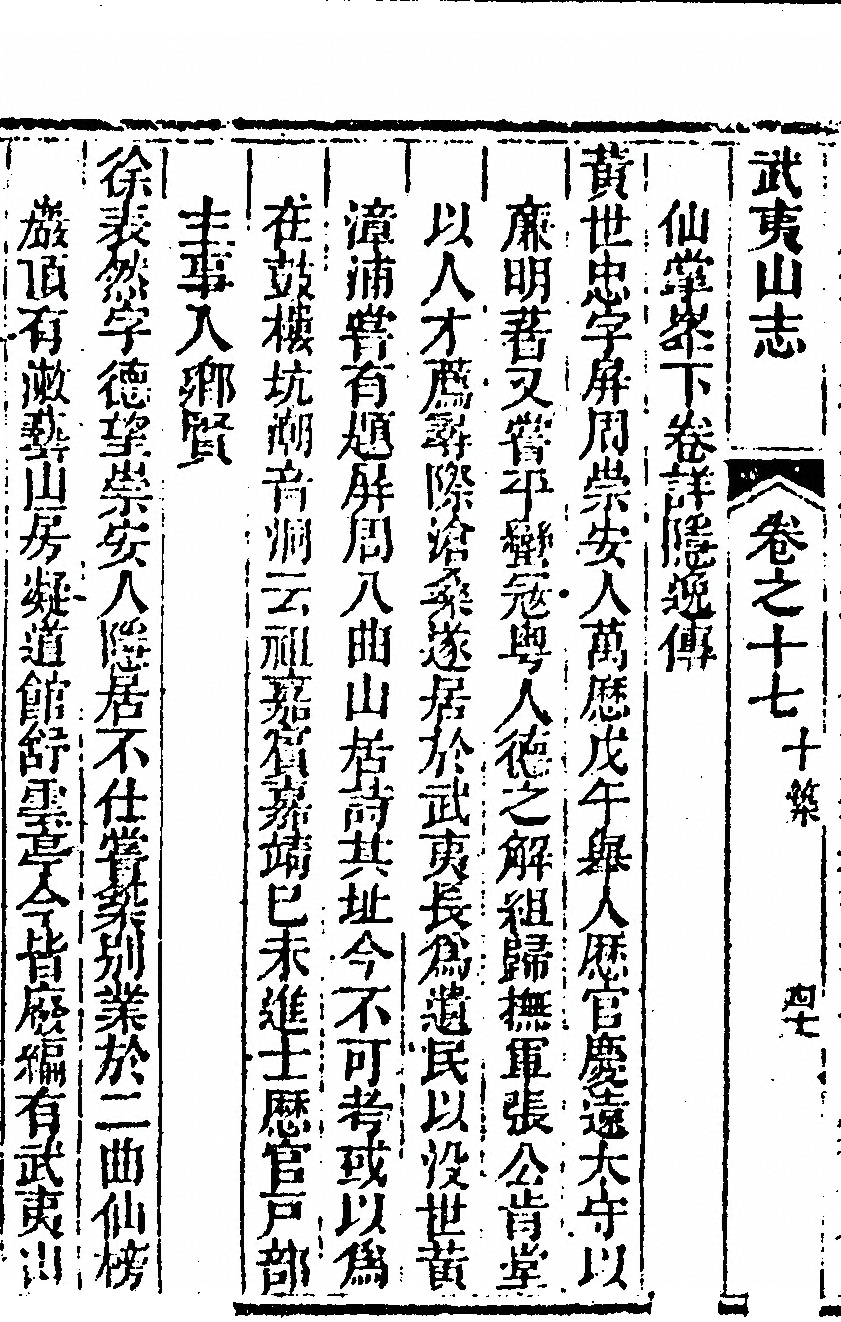 武夷山志
卷之十七
卜築
四七
仙掌峯下卷詳隱逸傳
黃世忠字屏周崇安人萬歷戊午舉人歷官慶遠太守以
廉明著又嘗平蠻冦粵人德之解組歸撫軍張公肯堂
以人才薦尋際滄桑遂居於武夷長爲遺民以沒世黃
漳浦嘗有題屏周八曲山居詩其址今不可考或以爲
在鼓樓坑潮音洞云祖嘉賓嘉靖巳未進士歷官戶部
主事入鄉賢
徐表然字德望崇安人隱居不仕嘗築別業於二曲仙榜
巖頂有漱藝山房凝道館舒雲亭今皆廢編有武夷山